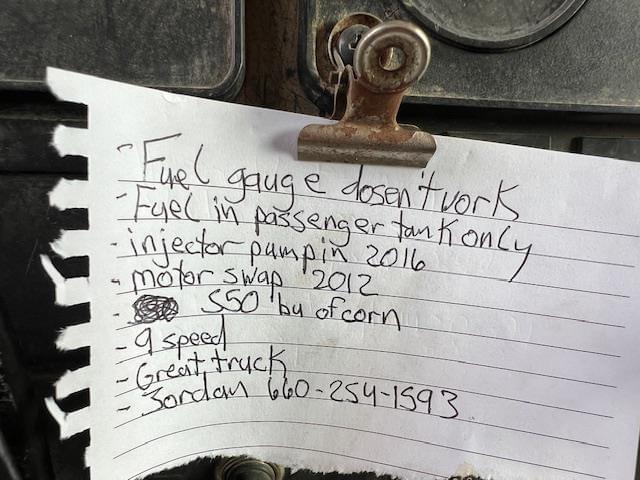 - Fuel gauge dosen't work
- Fuel in passenger tank only
- injector pump in 2016
- motor swap 2012
- 550 bu of corn
- 9 speed
- Great truck
- Jordan 660-254-1593